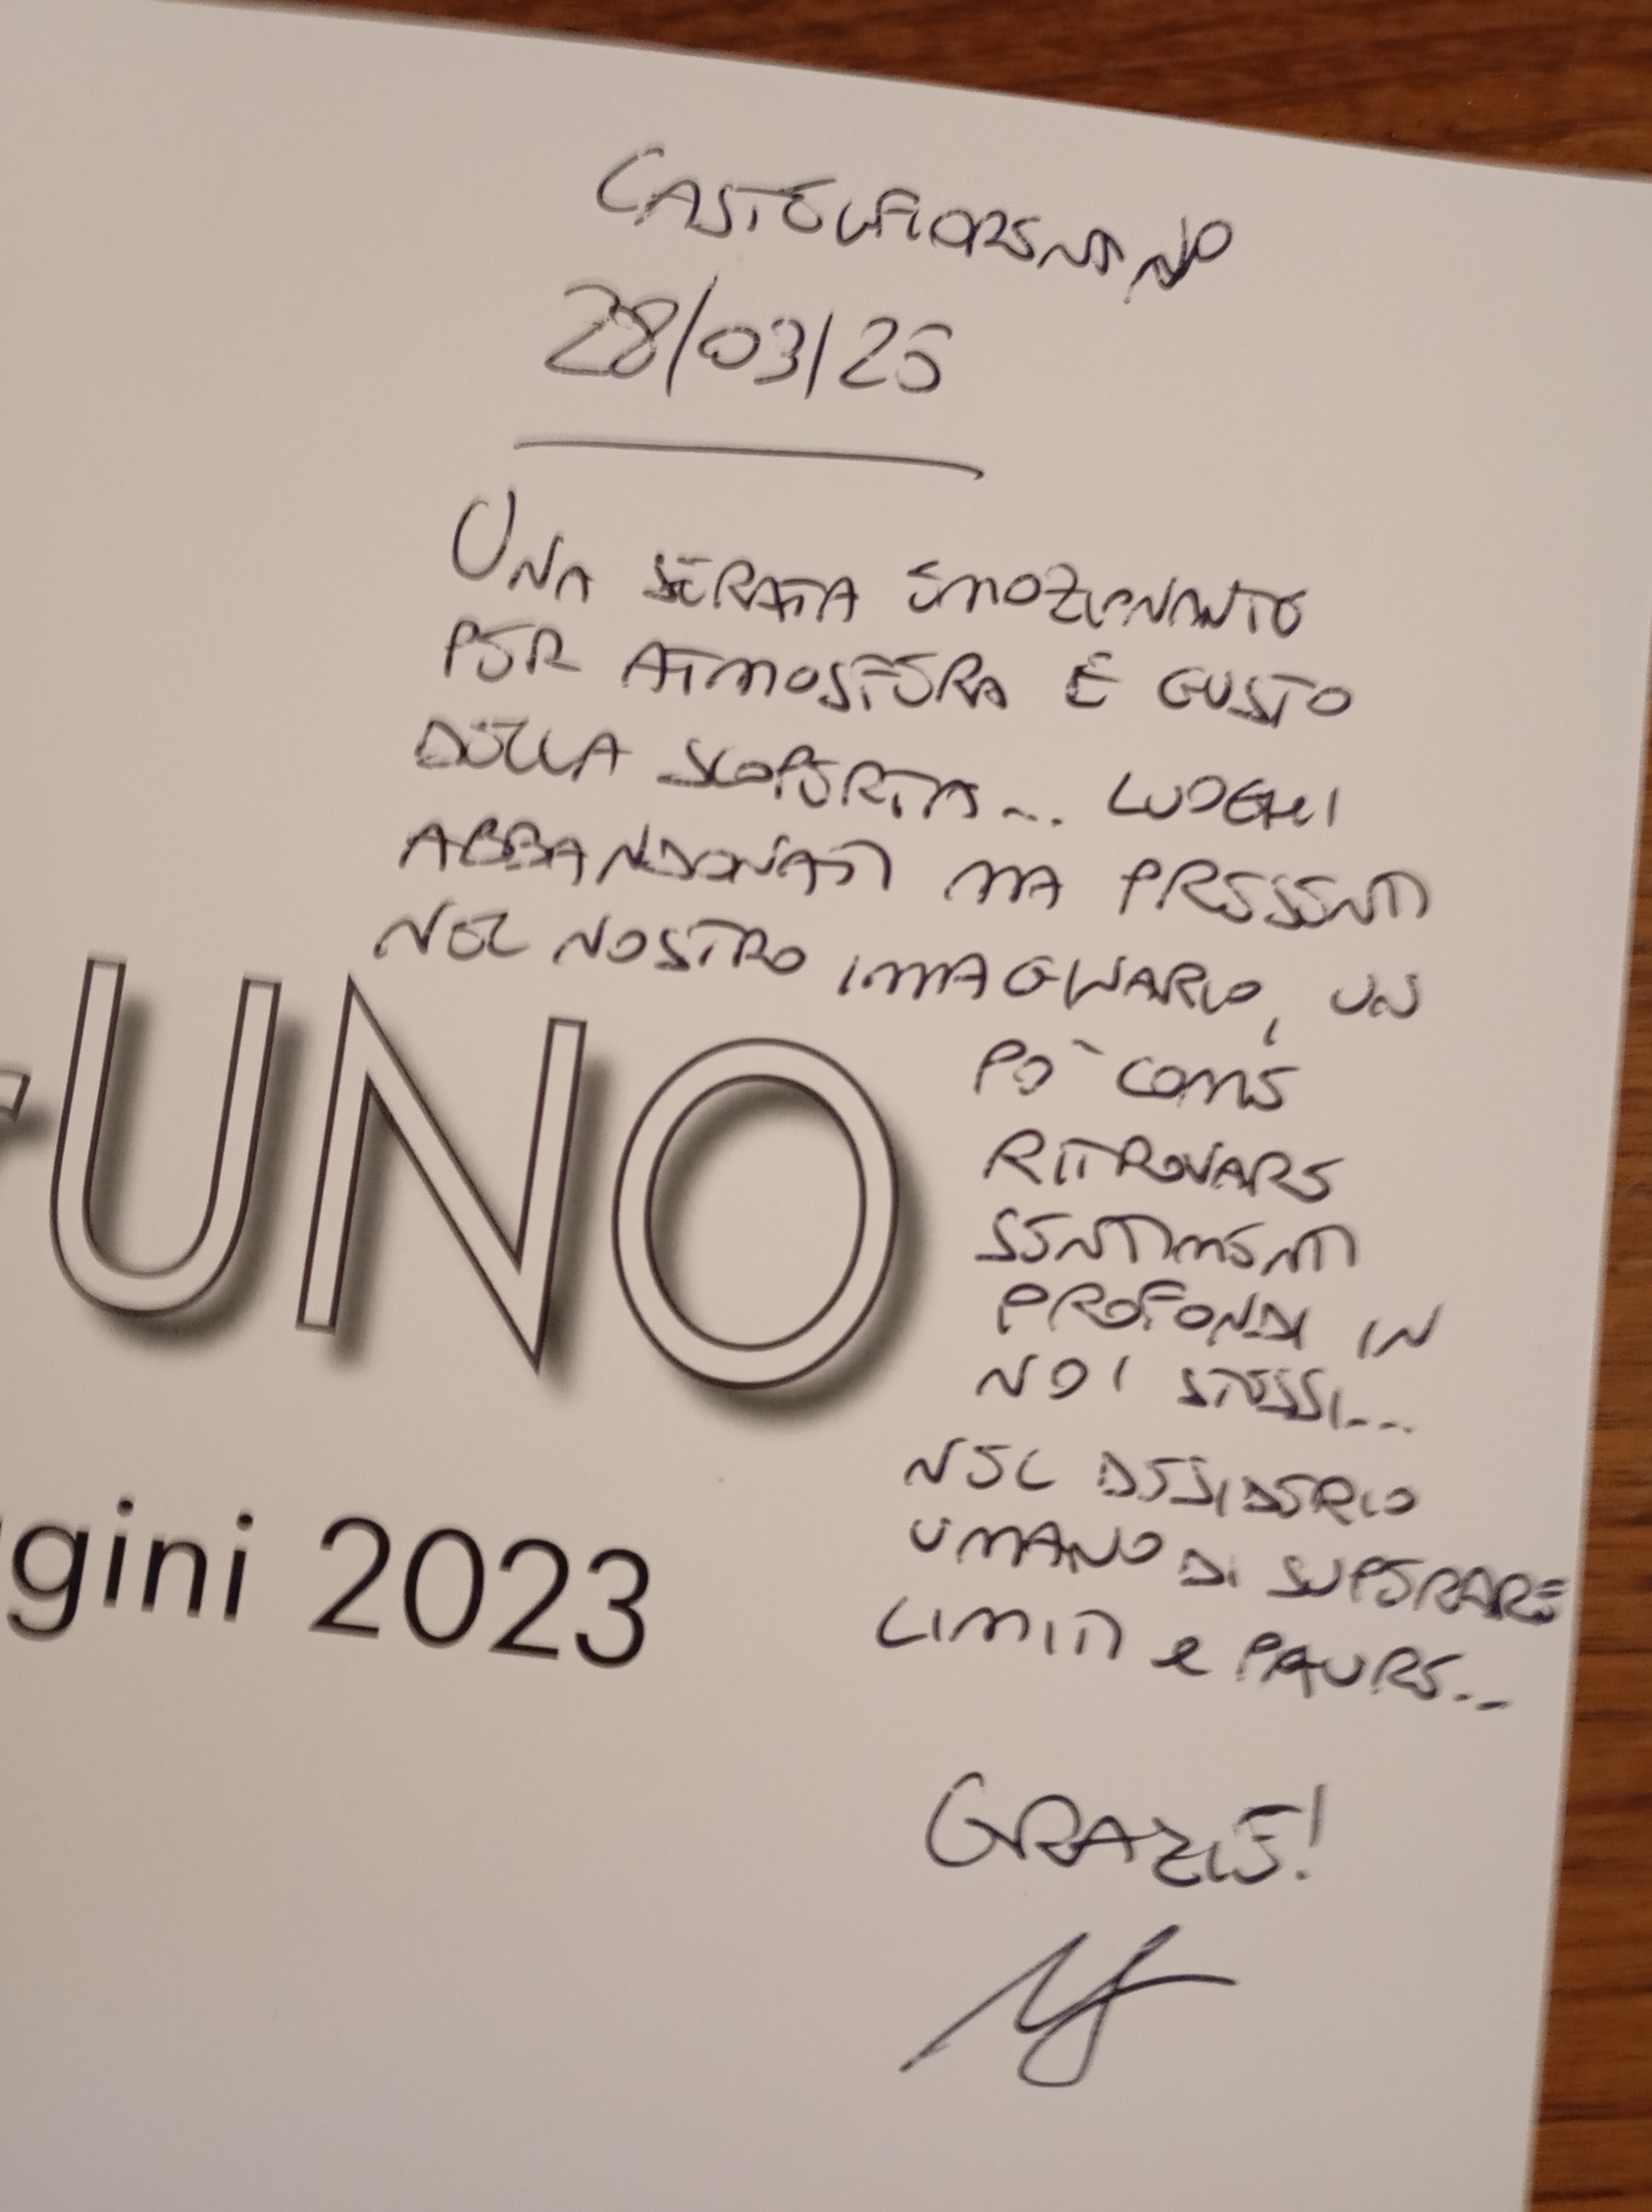 CASTELFIORENTINO
28/03/25
UNA SERATA EMOZIONANTE
PER ATMOSFERA E GUSTO
DELLA SCOPERTA... LUOGHI
ABBANDONATI MA PRESENTI
NEL NOSTRO IMMAGINARIO, UN
PO' COME
RITROVARE
SENTIMENTI
PROFONDI IN
NOI STESSI...
NEL DESIDERIO
UMANO DI SUPERARE
LIMITI e PAURE...
GRAZIE!
UNO
gini 2023